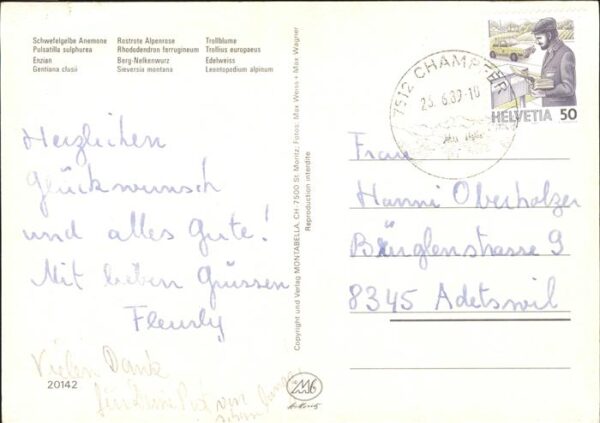 Schwefelgelbe Anemone
Pulsatilla sulphurea
Enzian
Gentiana clusii
Rostrote Alpenrose
Rhododendron ferrugineum
Berg-Nelkenwurz
Sieversia montana
Trollblume
Trollius europaeus
Edelweiss
Leontopodium alpinum
Herzlichen
Glückwunsch
und alles Gute!
Mit lieben Grüssen
Vielen Dank
20142
Copyright und Verlag MONTABELLA, CH-7500 St. Moritz, Fotos: Max Weiss + Max Wagner
Reproduction interdite
7512 CHAMPFER
HELVETIA 50
Frau
Hanni Oberholzer
Bürglenstrasse 9
8345 Adetswil